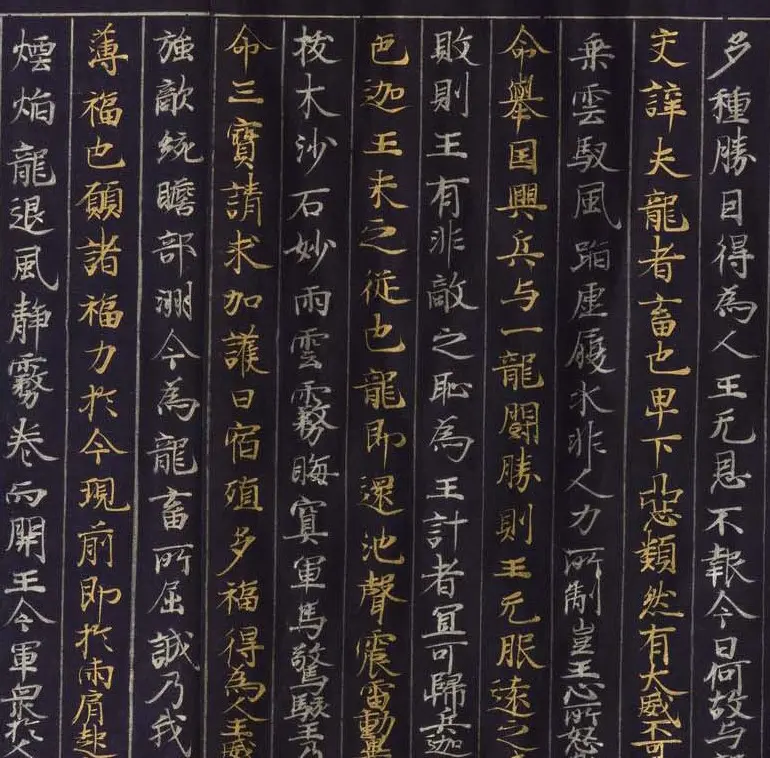 多種勝因得為人王无恩不報今日何故与
交諍夫龍者畜也卑下惡類然有大威不可
乗雲馭風蹈虛履水非人力所制豈王心所怒
命舉国興兵与一龍鬪勝則王无服遠之
敗則王有非敵之恥為王計者宜可歸兵迦
色迦王未之從也龍即還池聲震雷動
拔木沙石妙雨雲霧晦冥軍馬驚駭王乃
命三寶請求加護曰宿殖多福得為人王威
強敵統瞻部洲今為龍畜所屈誠乃我
薄福也願諸福力於今現前即於兩肩起
煙焰龍退風静霧卷雲開王令軍衆